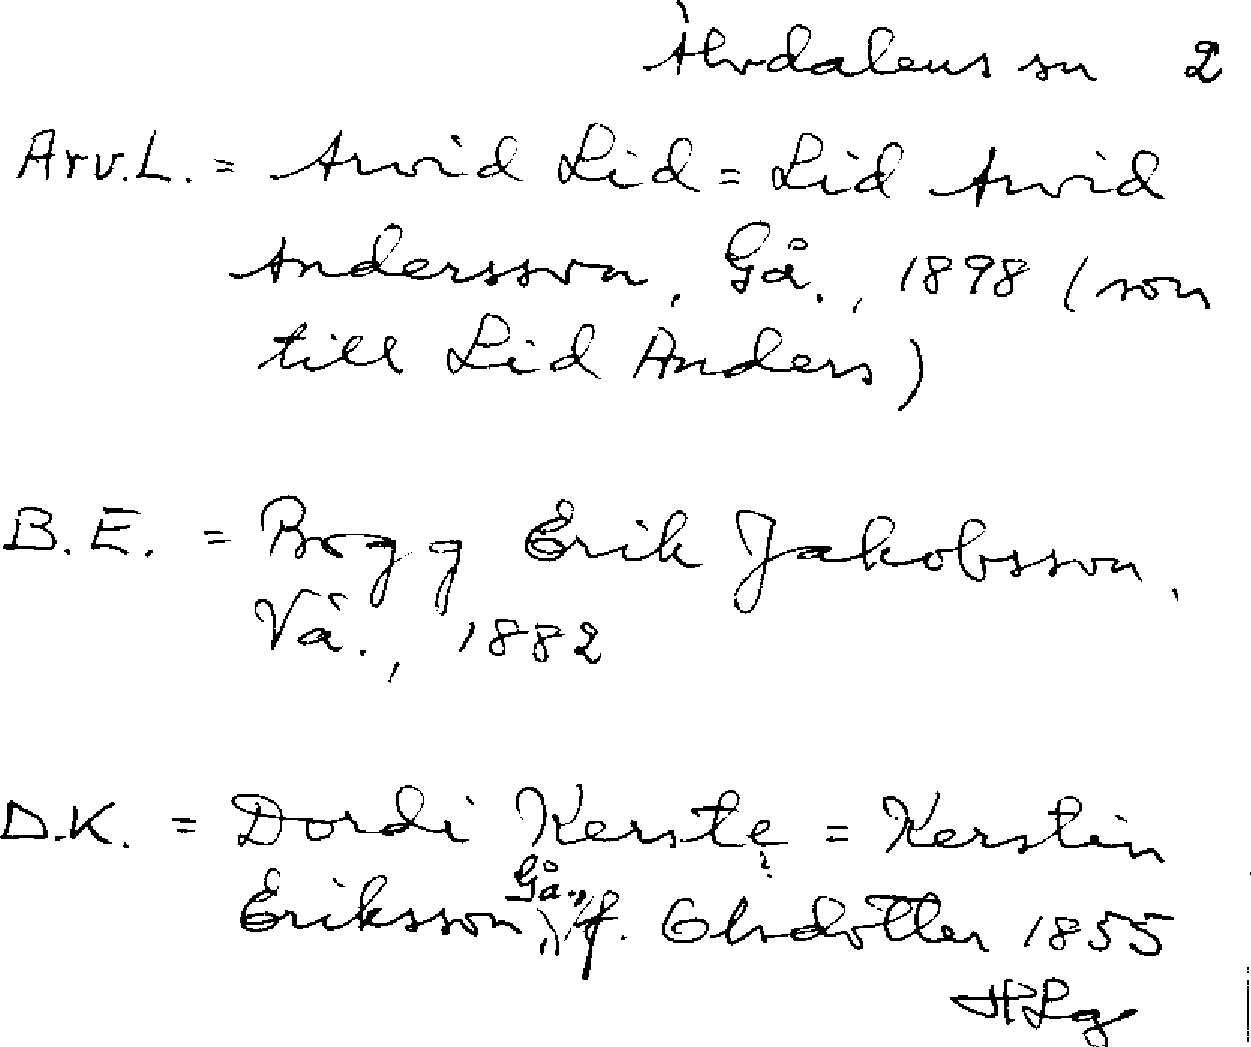 Älvdalens sn 2
Arv.L. = Arvid Lid = Lid Arvid
Andersson, Gå., 1898 (son
till Lid Anders)
B.E. = Bogg Erik Jakobsson,
Vå., 1882
D.K. = Dordi Kerste = Kerstin
Gå.,
Eriksson, f. Olsdotter 1855